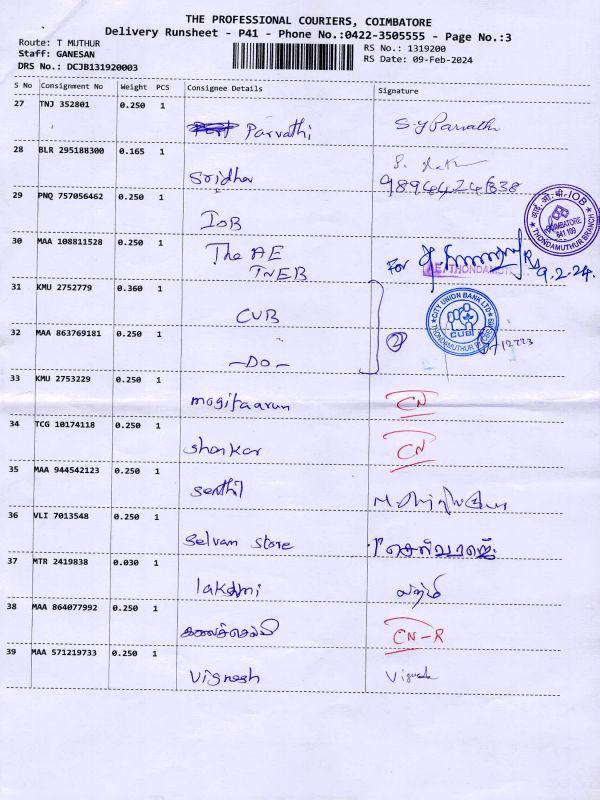 THE PROFESSIONAL COURIERS, COIMBATORE
Delivery Runsheet - P41 - Phone No.:0422-3505555 - Page No.:3
Route: T MUTHUR
RS No.: 1319200
Staff: GANESAN
RS Date: 09-Feb-2024
DRS No.: DCJB131920003
S No Consignment No Weight PCS Consignee Details Signature
27 TNJ 352801 0.250 1
Parvathi S-Y Parvathi
28 BLR 295188300 0.165 1
Sridhar
29 PNQ 757056462 0.250 1
IOB
30 MAA 108811528 0.250 1
The AE For
TNEB 9.2.24.
31 KMU 2752779 0.360 1
CUB
CITY UNION BANK LTD
CUB
32 MAA 863769181 0.250 1
-DO- 2
33 KMU 2753229 0.250 1
mogitaarun CN
34 TCG 10174118 0.250 1
Shankar CN
35 MAA 944542123 0.250 1
Senthil
36 VLI 7013548 0.250 1
Selvam Store செல்வராஜ்
37 MTR 2419838 0.030 1
lakshmi
38 MAA 864077992 0.250 1
கலைச்செல்வி CN-R
39 MAA 571219733 0.250 1
Vignesh
IOB
COIMBATORE
641 109
THONDAMUTHUR BRANCH